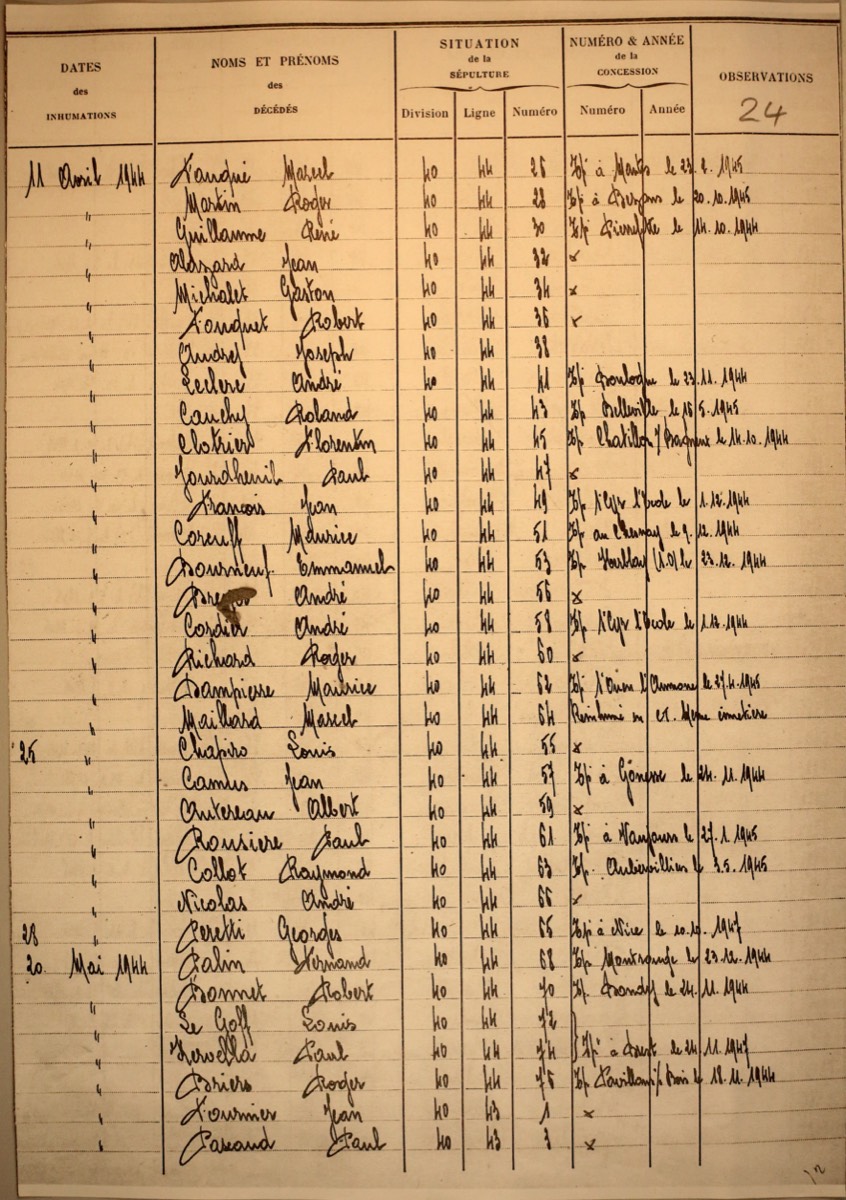 DATES des INHUMATIONS
NOMS ET PRÉNOMS des DÉCÉDÉS
SITUATION de la SÉPULTURE
NUMÉRO & ANNÉE de la CONCESSION
OBSERVATIONS
24
Division Ligne Numéro Numéro Année
11 Avril 1944 Fouqué Marcel 40 44 26 Tp à Mantes le 23. 2. 1945
" Martin Roger 40 44 28 Tp à Bezons le 20.10.1945
" Guillaume René 40 44 30 Tp Pierrefitte le 14.10.1944
" Alazard Jean 40 44 32 x
" Michalet Gaston 40 44 34 x
" Fouquet Robert 40 44 36 x
" Andref Joseph 40 44 38
" Leclerc André 40 44 41 Tp Boulogne le 23.11.1944
" Cauchy Roland 40 44 43 Tp Belleville le 5.1945
" Clotrier Florentin 40 44 45 Tp Chatillon / Bagneux le 14.10.1944
" Jourdheuil Paul 40 44 47 x
" François Jean 40 44 49 Tp St Cyr l'Ecole le 1.12.1944
" Coreuff Maurice 40 44 51 Tp au Chesnay le 9. 12. 1944
" Bourneuf Emmanuel 40 44 53 Tp (S.O) le 23.12. 1944
" André 40 44 56 x
" Cordier André 40 44 58 Tp St Cyr l'Ecole le 1.12.1944
" Richard Roger 40 44 60 x
" Dampierre Maurice 40 44 62 Tp St Ouen l'Aumone le 27.4.1945
" Maillard Marcel 40 44 64 Reinhumé en même cimetière
25 " Chapiro Louis 40 44 55 x
" Camus Jean 40 44 57 Tp à Gonesse le 24.11.1944
" Autereau Albert 40 44 59 x
" Rousiere Paul 40 44 61 Tp à Vaujours le 27.1.1945
" Collot Raymond 40 44 63 Tp. Aubervilliers le 3.5.1945
" Nicolas André 40 44 66 x
28 " Peretti Georges 40 44 65 Tp à Nice le 10.10.1947
20 Mai 1944 Palin Fernand 40 44 68 Tp Montrouge le 23.12.1944
" Bonnet Robert 40 44 70 Tp. Bondy le 24.11.1944
" Le Goff Louis 40 44 72
" Kervella Paul 40 44 74 } Tp à Brest le 24.11.1947
" Briers Roger 40 44 76 Tp Pavillons s/s Bois le 18.11.1944
" Fournier Jean 40 43 1 x
" Paseaud Paul 40 43 3 x